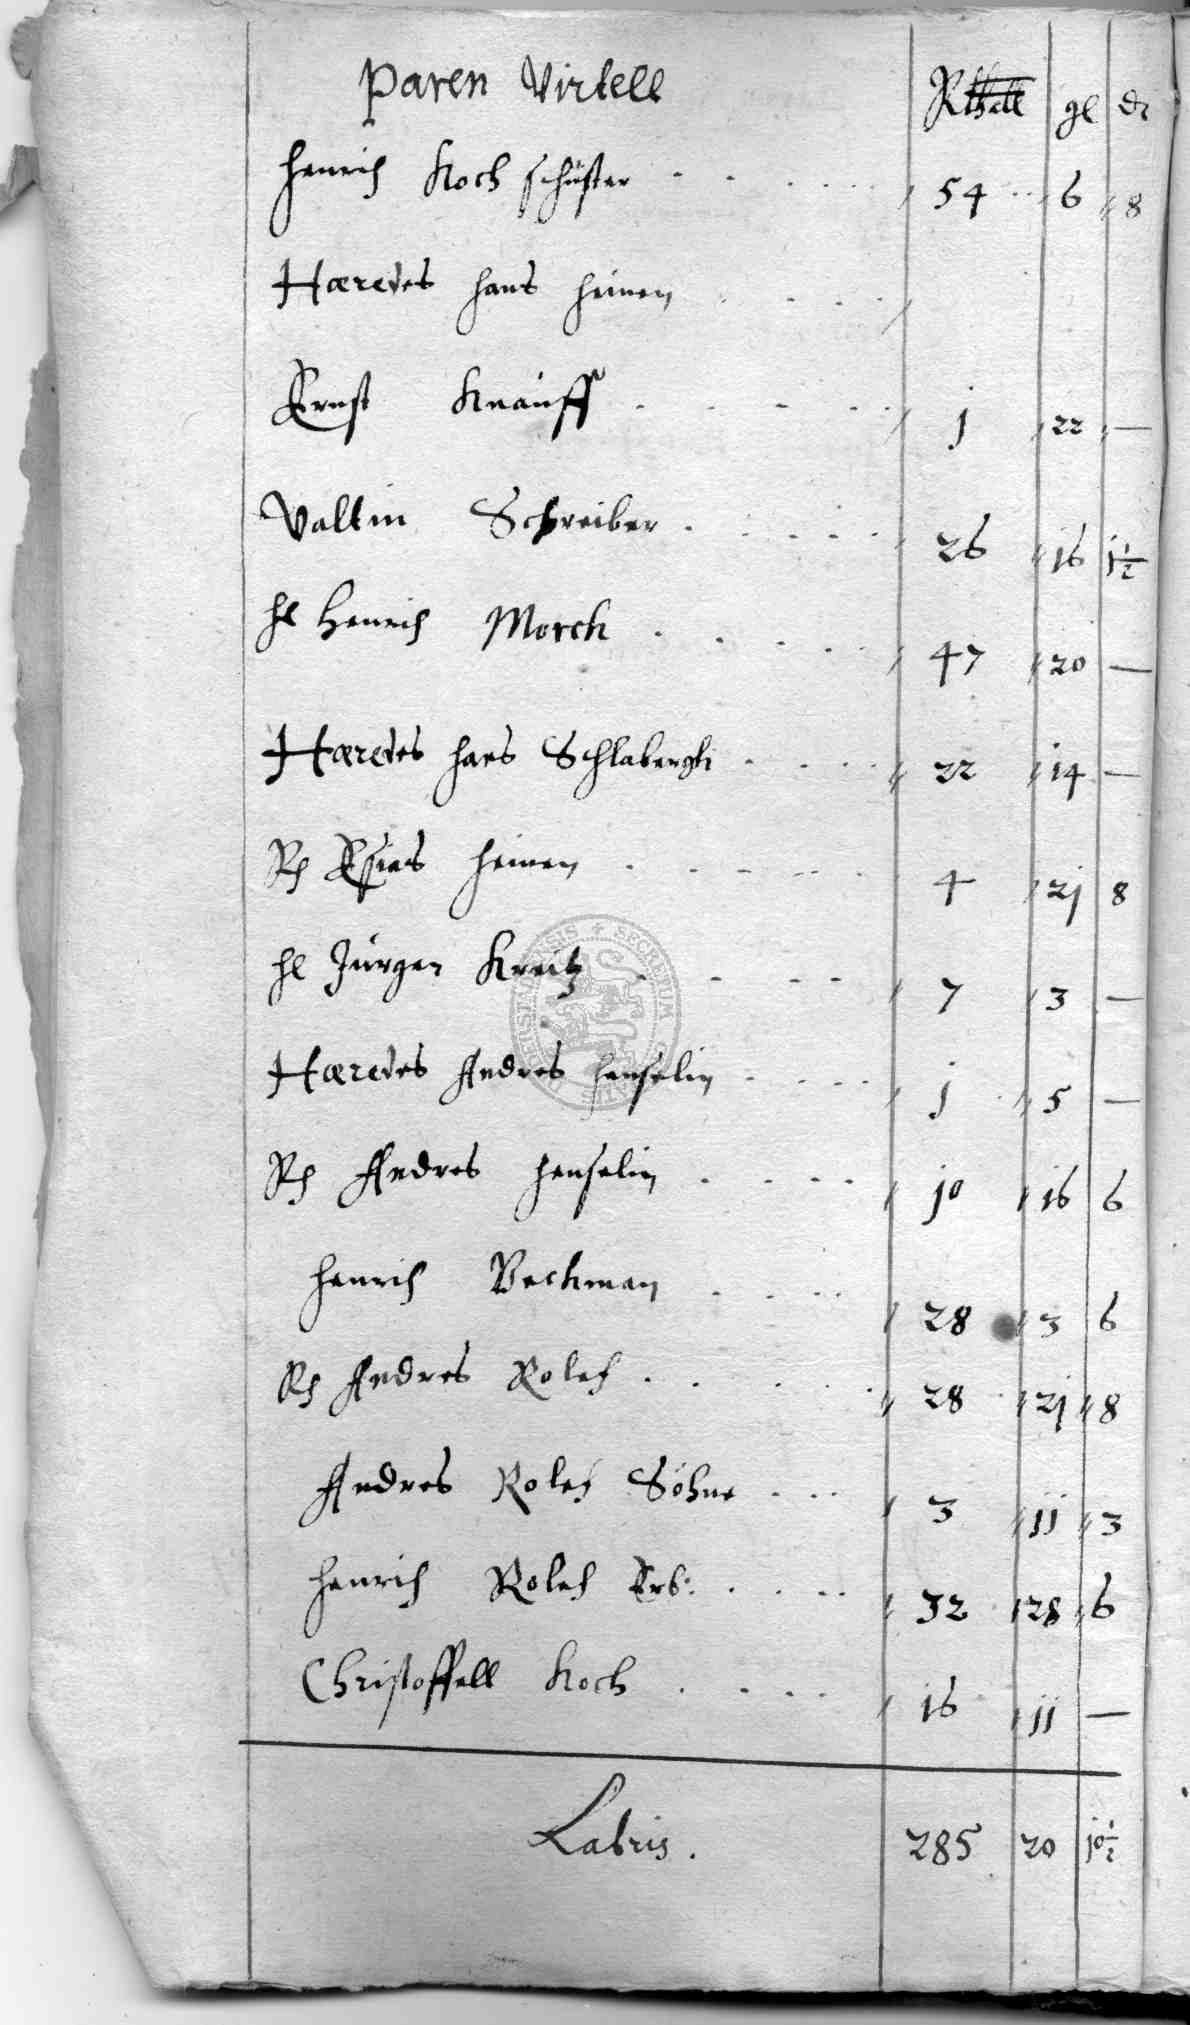 Paren Virtell Rthall gl ₰
Henrich Koch schuster . . . . . 54 6 8
Hæredes Hans Heinen . . . .
Ernst Knauff . . . . . j 22 —
Valtin Schreiber . . . . . 26 16 j½
Hl Henrich Morch . . . . . 47 20 —
Hæredes Hans Schlabergh . . . . 22 14 —
Rh Esias Heinen . . . . . 4 2j 8
Hl Jurgen Kreitz . . . . . 7 3 —
Hæredes Andres Henselin . . . . j 5 —
Rh Andres Henselin . . . . j0 16 6
Henrich Beckman . . . . 28 3 6
Rh Andres Rolef . . . . . 28 2j 8
Andres Rolef Söhne . . . 3 jj 3
Henrich Rolef Erb: . . . . 32 28 6
Christoffell Koch . . . . 16 jj —
Latris . 285 20 j0½